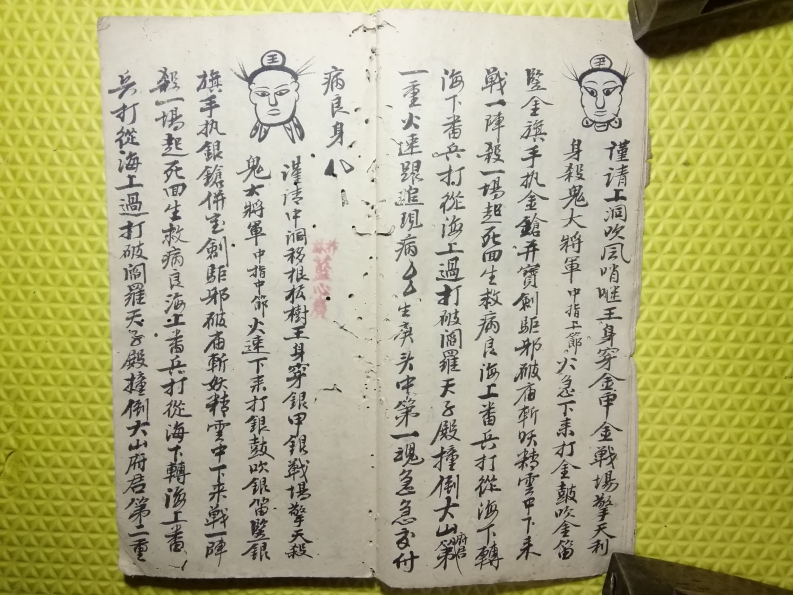 王
謹請上洞吹風哨咝王身穿金甲金戰場擎天利
身殺鬼大將軍中指上節火急下来打金鼓吹金笛
竪金旗手执金鎗并寶劍駈邪破庙斬妖精雲中下来
戰一陣殺一場起死回生救病良海上番兵打從海下轉
海下番兵打從海上過打破閻羅天子殿撞倒大山府君第
一重火速跟追現病厶厶生庚头中第一魂急急交付
病良身
王
謹请中洞移根拔樹王身穿銀甲銀戰場擎天殺
鬼大將軍中指中節火速下来打銀鼓吹銀笛竪銀
旗手执銀鎗併宝劍駈邪破庙斬妖精雲中下来戰一陣
殺一場起死回生救病良海上番兵打從海下轉海上番
兵打從海上過打破閻羅天子殿撞倒大山府君第二重